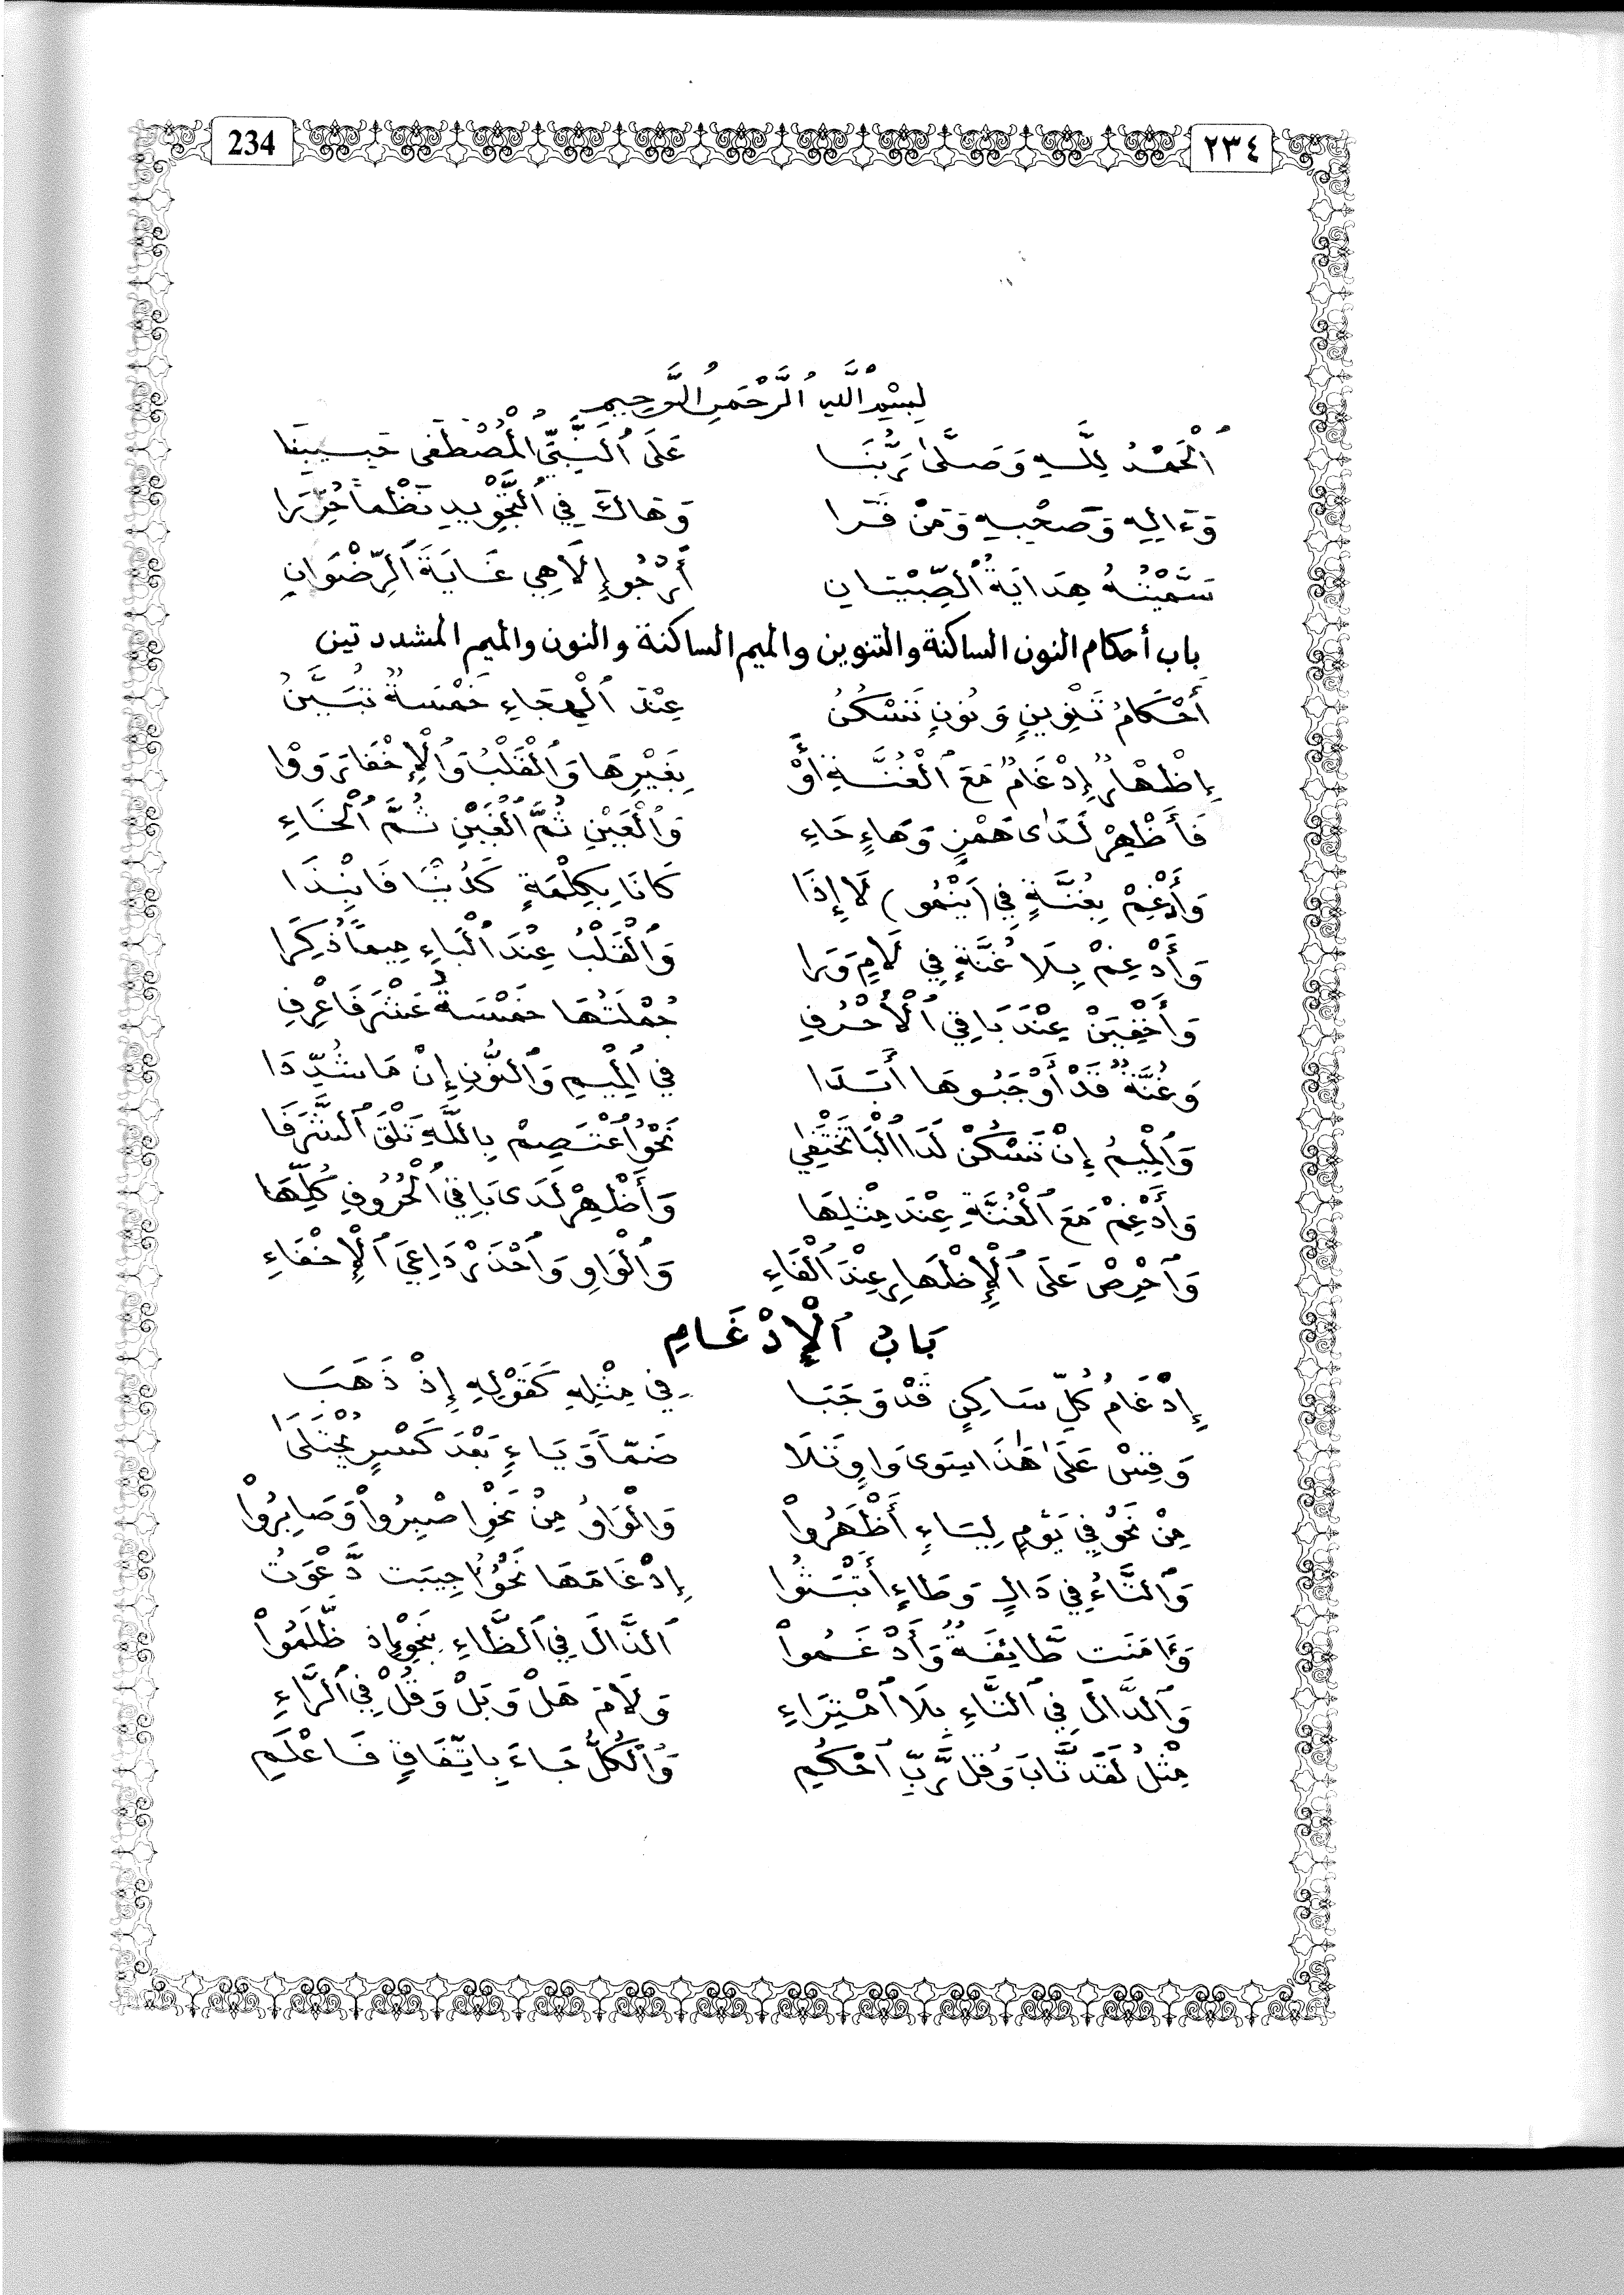 234 ٢٣٤
بِسْمِ ٱللَّهِ ٱلرَّحْمَٰنِ ٱلرَّحِيمِ
ٱلْحَمْدُ لِلَّهِ وَصَلَّىٰ رَبُّنَا عَلَى ٱلنَّبِيِّ ٱلْمُصْطَفَى حَبِيبِنَا
وَءَالِهِ وَصَحْبِهِ وَمَنْ قَرَا وَهَاكَ فِي ٱلتَّجْوِيدِ نَظْماً حُرِّرَا
سَمَّيْتُهُ هِدَايَةَ ٱلصِّبْيَانِ أَرْجُو إِلَاهِي غَايَةَ ٱلرِّضْوَانِ
باب أحكام النون الساكنة والتنوين والميم الساكنة والنون والميم المشددتين
أَحْكَامُ تَنْوِينٍ وَنُونٍ تَسْكُنُ عِنْدَ ٱلْهِجَاءِ خَمْسَةٌ تُبَيَّنُ
إِظْهَارٌ إِدْغَامٌ مَعَ ٱلْغُنَّةِ أَوْ بِغَيْرِهَا وَٱلْقَلْبُ وَٱلْإِخْفَا رَوَوْا
فَأَظْهِرْ لَدَىٰ هَمْزٍ وَهَاءٍ حَاءِ وَٱلْعَيْنِ ثُمَّ ٱلْغَيْنِ ثُمَّ ٱلْخَاءِ
وَأَدْغِمْ بِغُنَّةٍ فِي (يَنْمُو) لَا إِذَا كَانَا بِكِلْمَةٍ كَدُنْيَا فَانْبِذَا
وَأَدْغِمْ بِلَا غُنَّةٍ فِي لَامٍ وَرَا وَٱلْقَلْبُ عِنْدَ ٱلْبَاءِ مِيماً ذُكِرَا
وَأَخْفِيَنْ عِنْدَ بَاقِي ٱلْأَحْرُفِ جُمْلَتُهَا خَمْسَةُ عَشْرَ فَاعْرِفِ
وَغُنَّةٌ قَدْ أَوْجَبُوهَا أَبَدَا فِي ٱلْمِيمِ وَٱلنُّونِ إِنْ مَا شُدِّدَا
وَٱلْمِيمُ إِنْ تَسْكُنْ لَدَا ٱلْبَا تَخْتَفِي نَحْوُ ٱعْتَصِمْ بِاللَّهِ تَلْقَ ٱلشَّرَفَا
وَأَدْغِمْ مَعَ ٱلْغُنَّةِ عِنْدَ مِثْلِهَا وَأَظْهِرْ لَدَى بَاقِي ٱلْحُرُوفِ كُلِّهَا
وَٱحْرِصْ عَلَى ٱلْإِظْهَارِ عِنْدَ ٱلْفَاءِ وَٱلْوَاوِ وَٱحْذَرْ دَاعِيَ ٱلْإِخْفَاءِ
بَابُ ٱلْإِدْغَامِ
إِدْغَامُ كُلِّ سَاكِنٍ قَدْ وَجَبَا فِي مِثْلِهِ كَقَوْلِهِ إِذْ ذَهَبَ
وَقِسْ عَلَىٰ هَٰذَا سِوَى وَاوٍ تَلَا ضَمّاً وَيَاءٍ بَعْدَ كَسْرٍ يُجْتَلَىٰ
مِنْ نَحْوُ فِي يَوْمٍ لِيَاءٍ أَظْهَرُواْ وَالْوَاوُ مِنْ نَحْوِ اصْبِرُواْ وَصَابِرُواْ
وَٱلتَّاءُ فِي دَالٍ وَطَاءٍ أَثْبَتُوا إِدْغَامَهَا نَحْوُ أُجِيبَت دَّعْوَتُ
وَءَامَنَت طَّائِفَةٌ وَأَدْغَمُواْ ٱلذَّالَ فِي ٱلظَّاءِ بِنَحْوِ إِذ ظَّلَمُواْ
وَٱلدَّالَ فِي ٱلتَّاءِ بِلَا ٱمْتِرَاءِ وَلَامَ هَلْ وَبَلْ وَقُلْ فِي ٱلرَّاءِ
مِثْلُ لَقَد تَّابَ وَقُل رَّبِّ ٱحْكُمِ وَٱلْكُلُّ جَاءَ بِاتِّفَاقٍ فَاعْلَمِ